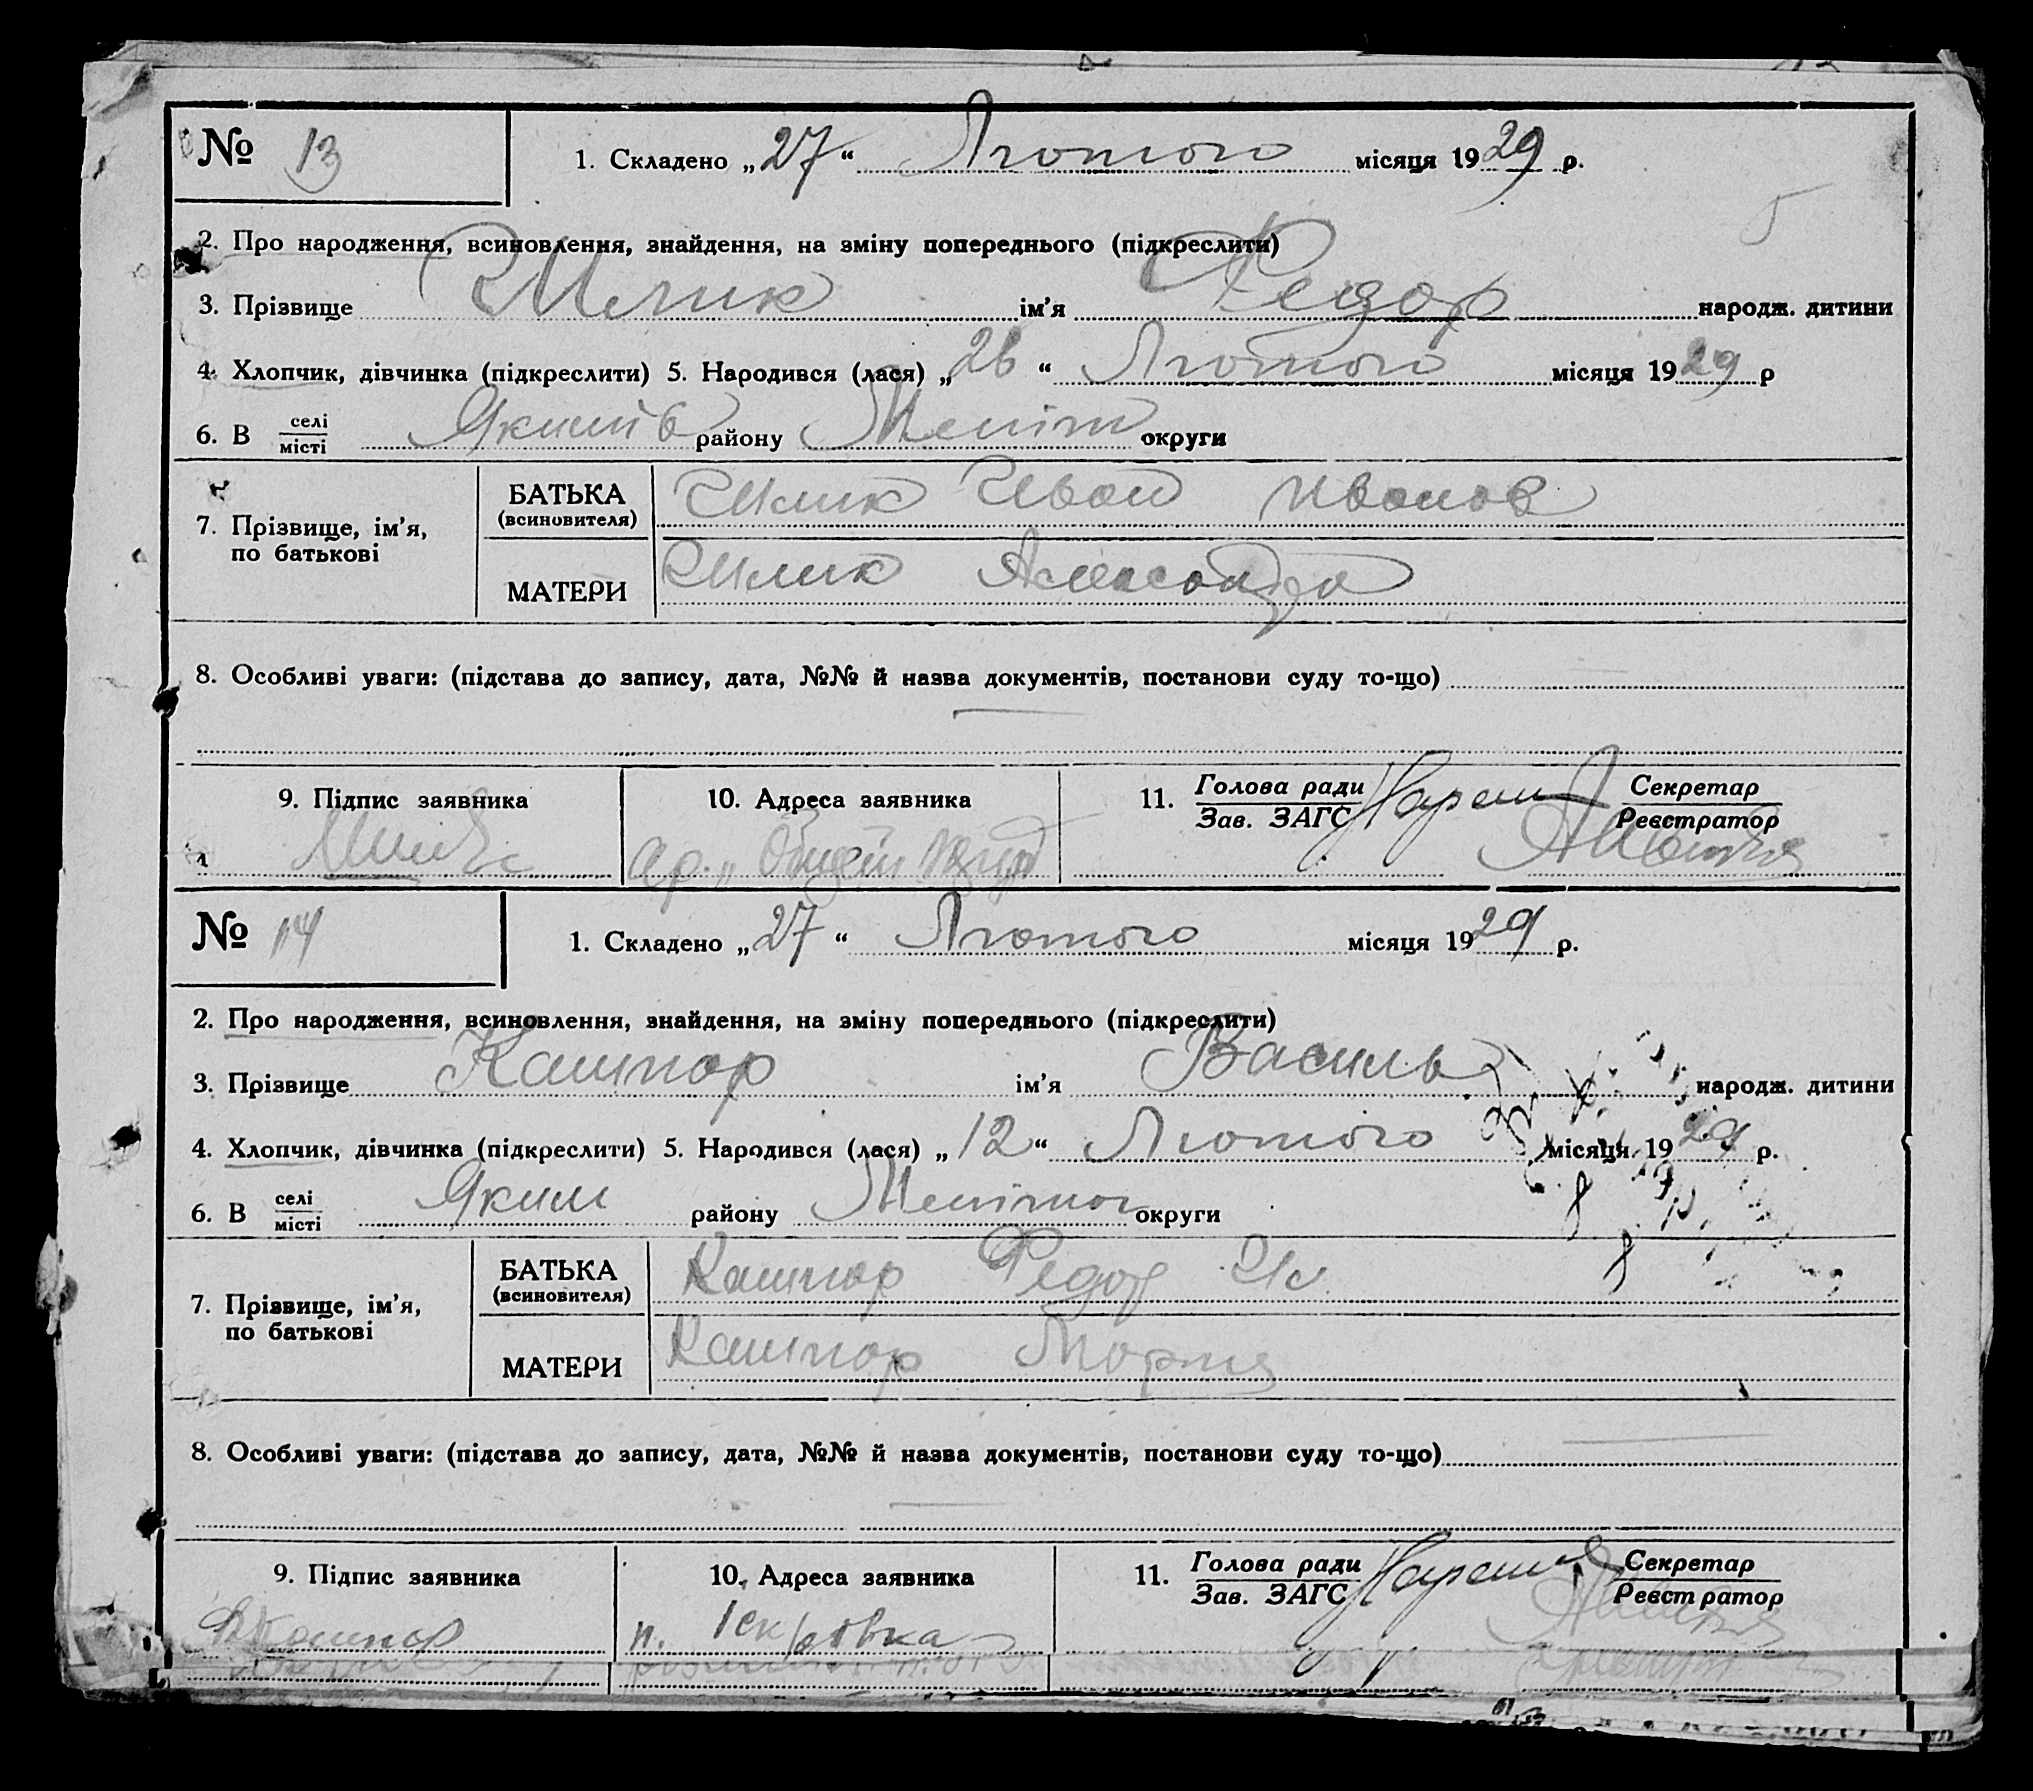 № 13 1. Складено „27“ Лютого місяця 1929 р.
5
2. Про народження, всиновлення, знайдення, на зміну попереднього (підкреслити)
3. Прізвище ім’я Федор народж. дитини
4. Хлопчик, дівчинка (підкреслити) 5. Народився (лася) „26“ Лютого місяця 1929 р
6. В селі місті району Меліт округи
7. Прізвище, ім’я, по батькові
БАТЬКА (всиновителя) Иван Иванов
МАТЕРИ Александра
8. Особливі уваги: (підстава до запису, дата, №№ й назва документів, постанови суду то-що)
9. Підпис заявника 10. Адреса заявника 11. Голова ради Зав. ЗАГС Секретар Реєстратор
№ 14 1. Складено „27“ Лютого місяця 1929 р.
2. Про народження, всиновлення, знайдення, на зміну попереднього (підкреслити)
3. Прізвище Кашпор ім’я Василь народж. дитини
4. Хлопчик, дівчинка (підкреслити) 5. Народився (лася) „12“ Лютого місяця 1929 р.
6. В селі місті Яким району Мелітоп округи
7. Прізвище, ім’я, по батькові
БАТЬКА (всиновителя) Кашпор Федор Ив.
МАТЕРИ Кашпор Мария
8. Особливі уваги: (підстава до запису, дата, №№ й назва документів, постанови суду то-що)
9. Підпис заявника 10. Адреса заявника 11. Голова ради Зав. ЗАГС Секретар Реєстратор
Кашпор п.